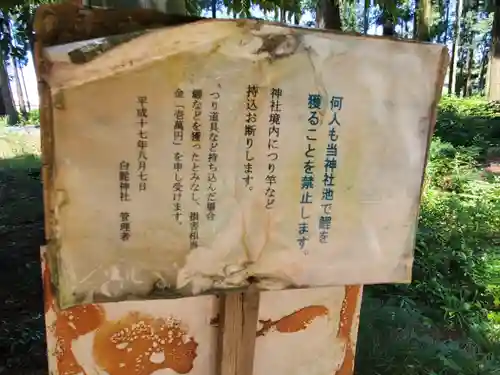 何人も当神社池で鯉を
獲ることを禁止します。
神社境内につり竿など
持込お断りします。
つり道具など持ち込んだ場合
鯉などを獲ったとみなし、損害相当
金「壱萬円」を申し受けます。
平成十七年八月七日
白龍神社 管理者